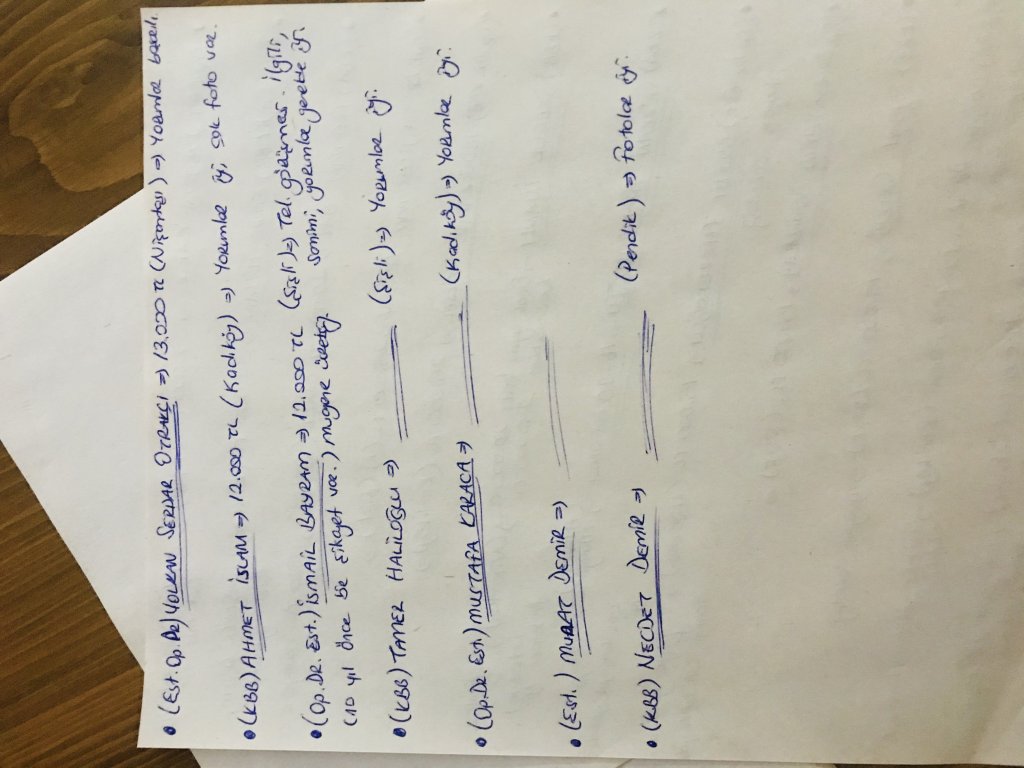 • (Est. Op. Dr) VOLKAN SERDAR OTRAKÇI => 13.000 TL (Nişantaşı) => Yorumlar
• (KBB) AHMET İSLAM => 12.000 TL (Kadıköy) => Yorumlar iyi çok foto var.
• (Op. Dr. Est.) İSMAİL BAYRAM => 12.000 TL (Şişli) => Tel. görüşmesi. ilgili,
samimi, yorumlar genelde iyi
(10 yıl önce bir şikayet var.) muayene ücretsiz
• (KBB) TANER HALİLOĞLU => (Şişli) => Yorumlar iyi.
• (Op. Dr. Est.) MUSTAFA KARACA => (Kadıköy) => Yorumlar iyi.
• (Est.) MURAT DEMİR =>
• (KBB) NECDET DEMİR => (Pendik) => Fotolar iyi.